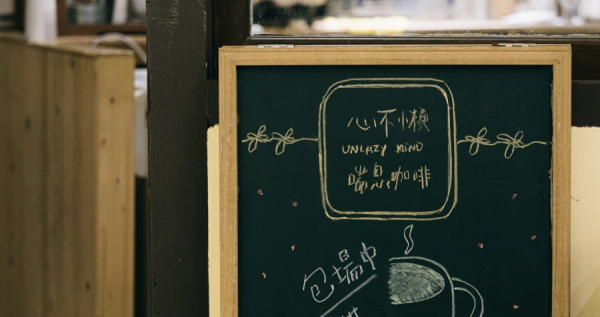 心不懶
UNLAZY MIND
喘息咖啡
包場中